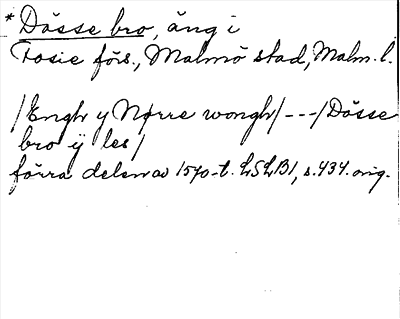 * Dösse bro, äng i
Fosie förs., Malmö stad, Malm. l.
/Engh y Nørre wongh/---/Dösse
bro ÿ les/
förra delen av 1570-t. LSLB1, s. 434. orig.